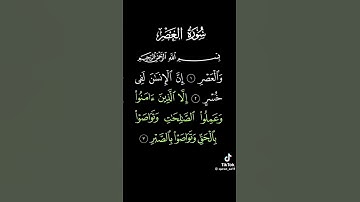 سُورَةُ العَصْرِ
بِسْمِ اللَّهِ الرَّحْمَٰنِ الرَّحِيمِ
وَالْعَصْرِ ١ إِنَّ الْإِنسَٰنَ لَفِى
خُسْرٍ ٢ إِلَّا الَّذِينَ ءَامَنُوا
وَعَمِلُوا الصَّٰلِحَٰتِ وَتَوَاصَوْا
بِالْحَقِّ وَتَوَاصَوْا بِالصَّبْرِ ٣
TikTok